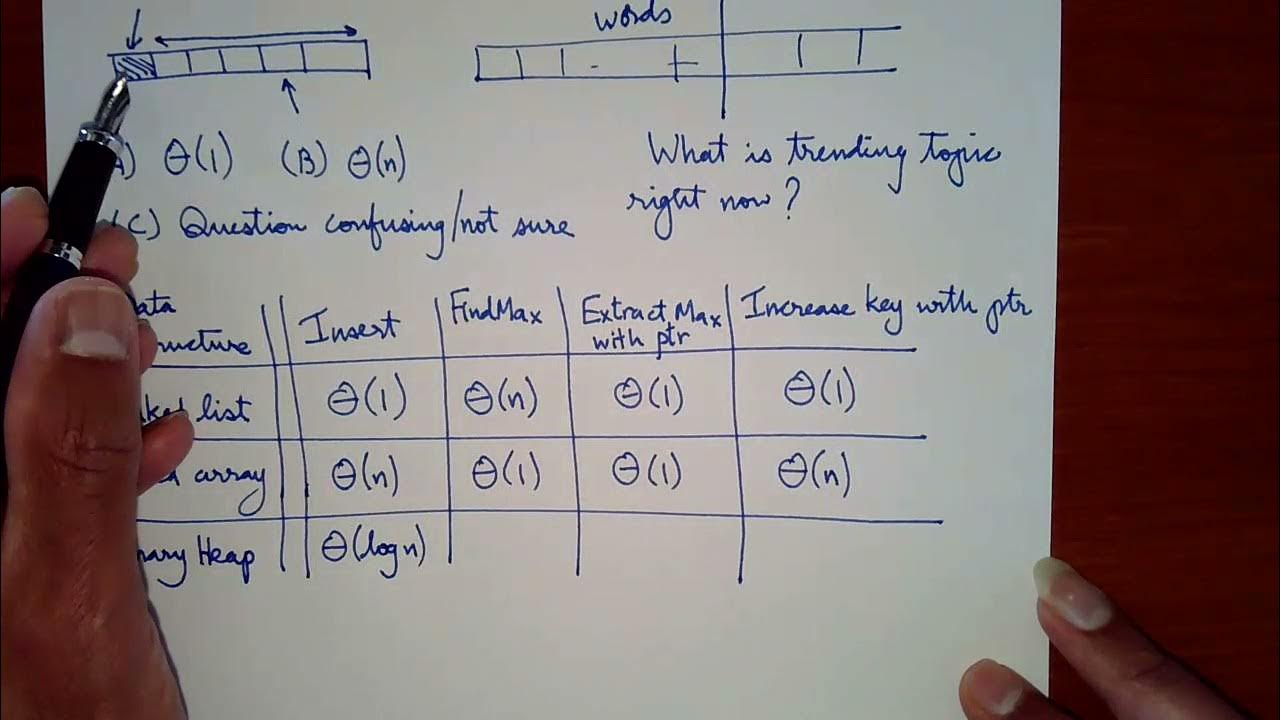 words
A) Θ(1) (B) Θ(n)
(C) Question confusing/not sure
What is trending topic
right now?
ata
ructure
Insert
FindMax
Extract Max
with ptr
Increase key with ptr
ked list Θ(1) Θ(n) Θ(1) Θ(1)
array Θ(n) Θ(1) Θ(1) Θ(n)
nary Heap Θ(log n)